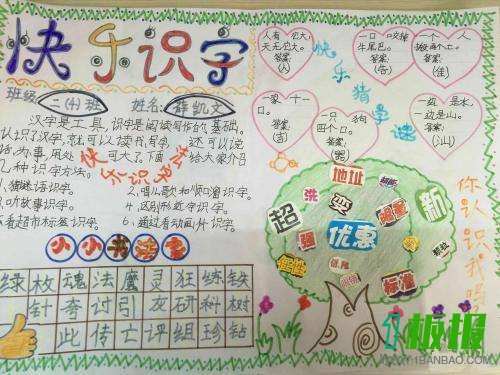 快乐识字
班级:二(4)班 姓名:薛凯文
汉字是工具,识字是阅读写作的基础。
认识了汉字,就可以读书,写字 还可以说
话,办事,用处 可大了,下面 给大家介绍
几种识字方法。
快乐识字
1、猜谜语识字。 2、唱儿歌和顺口溜识字。
听故事识字。 4、区别形近字识字。
看超市标签识字。 6、通过看动画片识字。
小小书法家
绿 枚 魂 法 魔 灵 狂 练 铁
针 夸 讨 引 友 研 种 树
此 传 亡 评 组 珍 钻
人有它大,
天无它大。
答案:
(人)
一口咬掉
牛尾巴。
答案:
(告)
一个人
搬两个土。
答案:
(佳)
快乐猜字谜
一家十一
口。
答案:
(吉)
一只狗
四个口。
答案:
(器)
一边是水,
一边是山。
答案:
(汕)
地址
洗
变
超
新
强
优惠
标准
你认识我吗
1板报
WWW.1BANBAO.COM